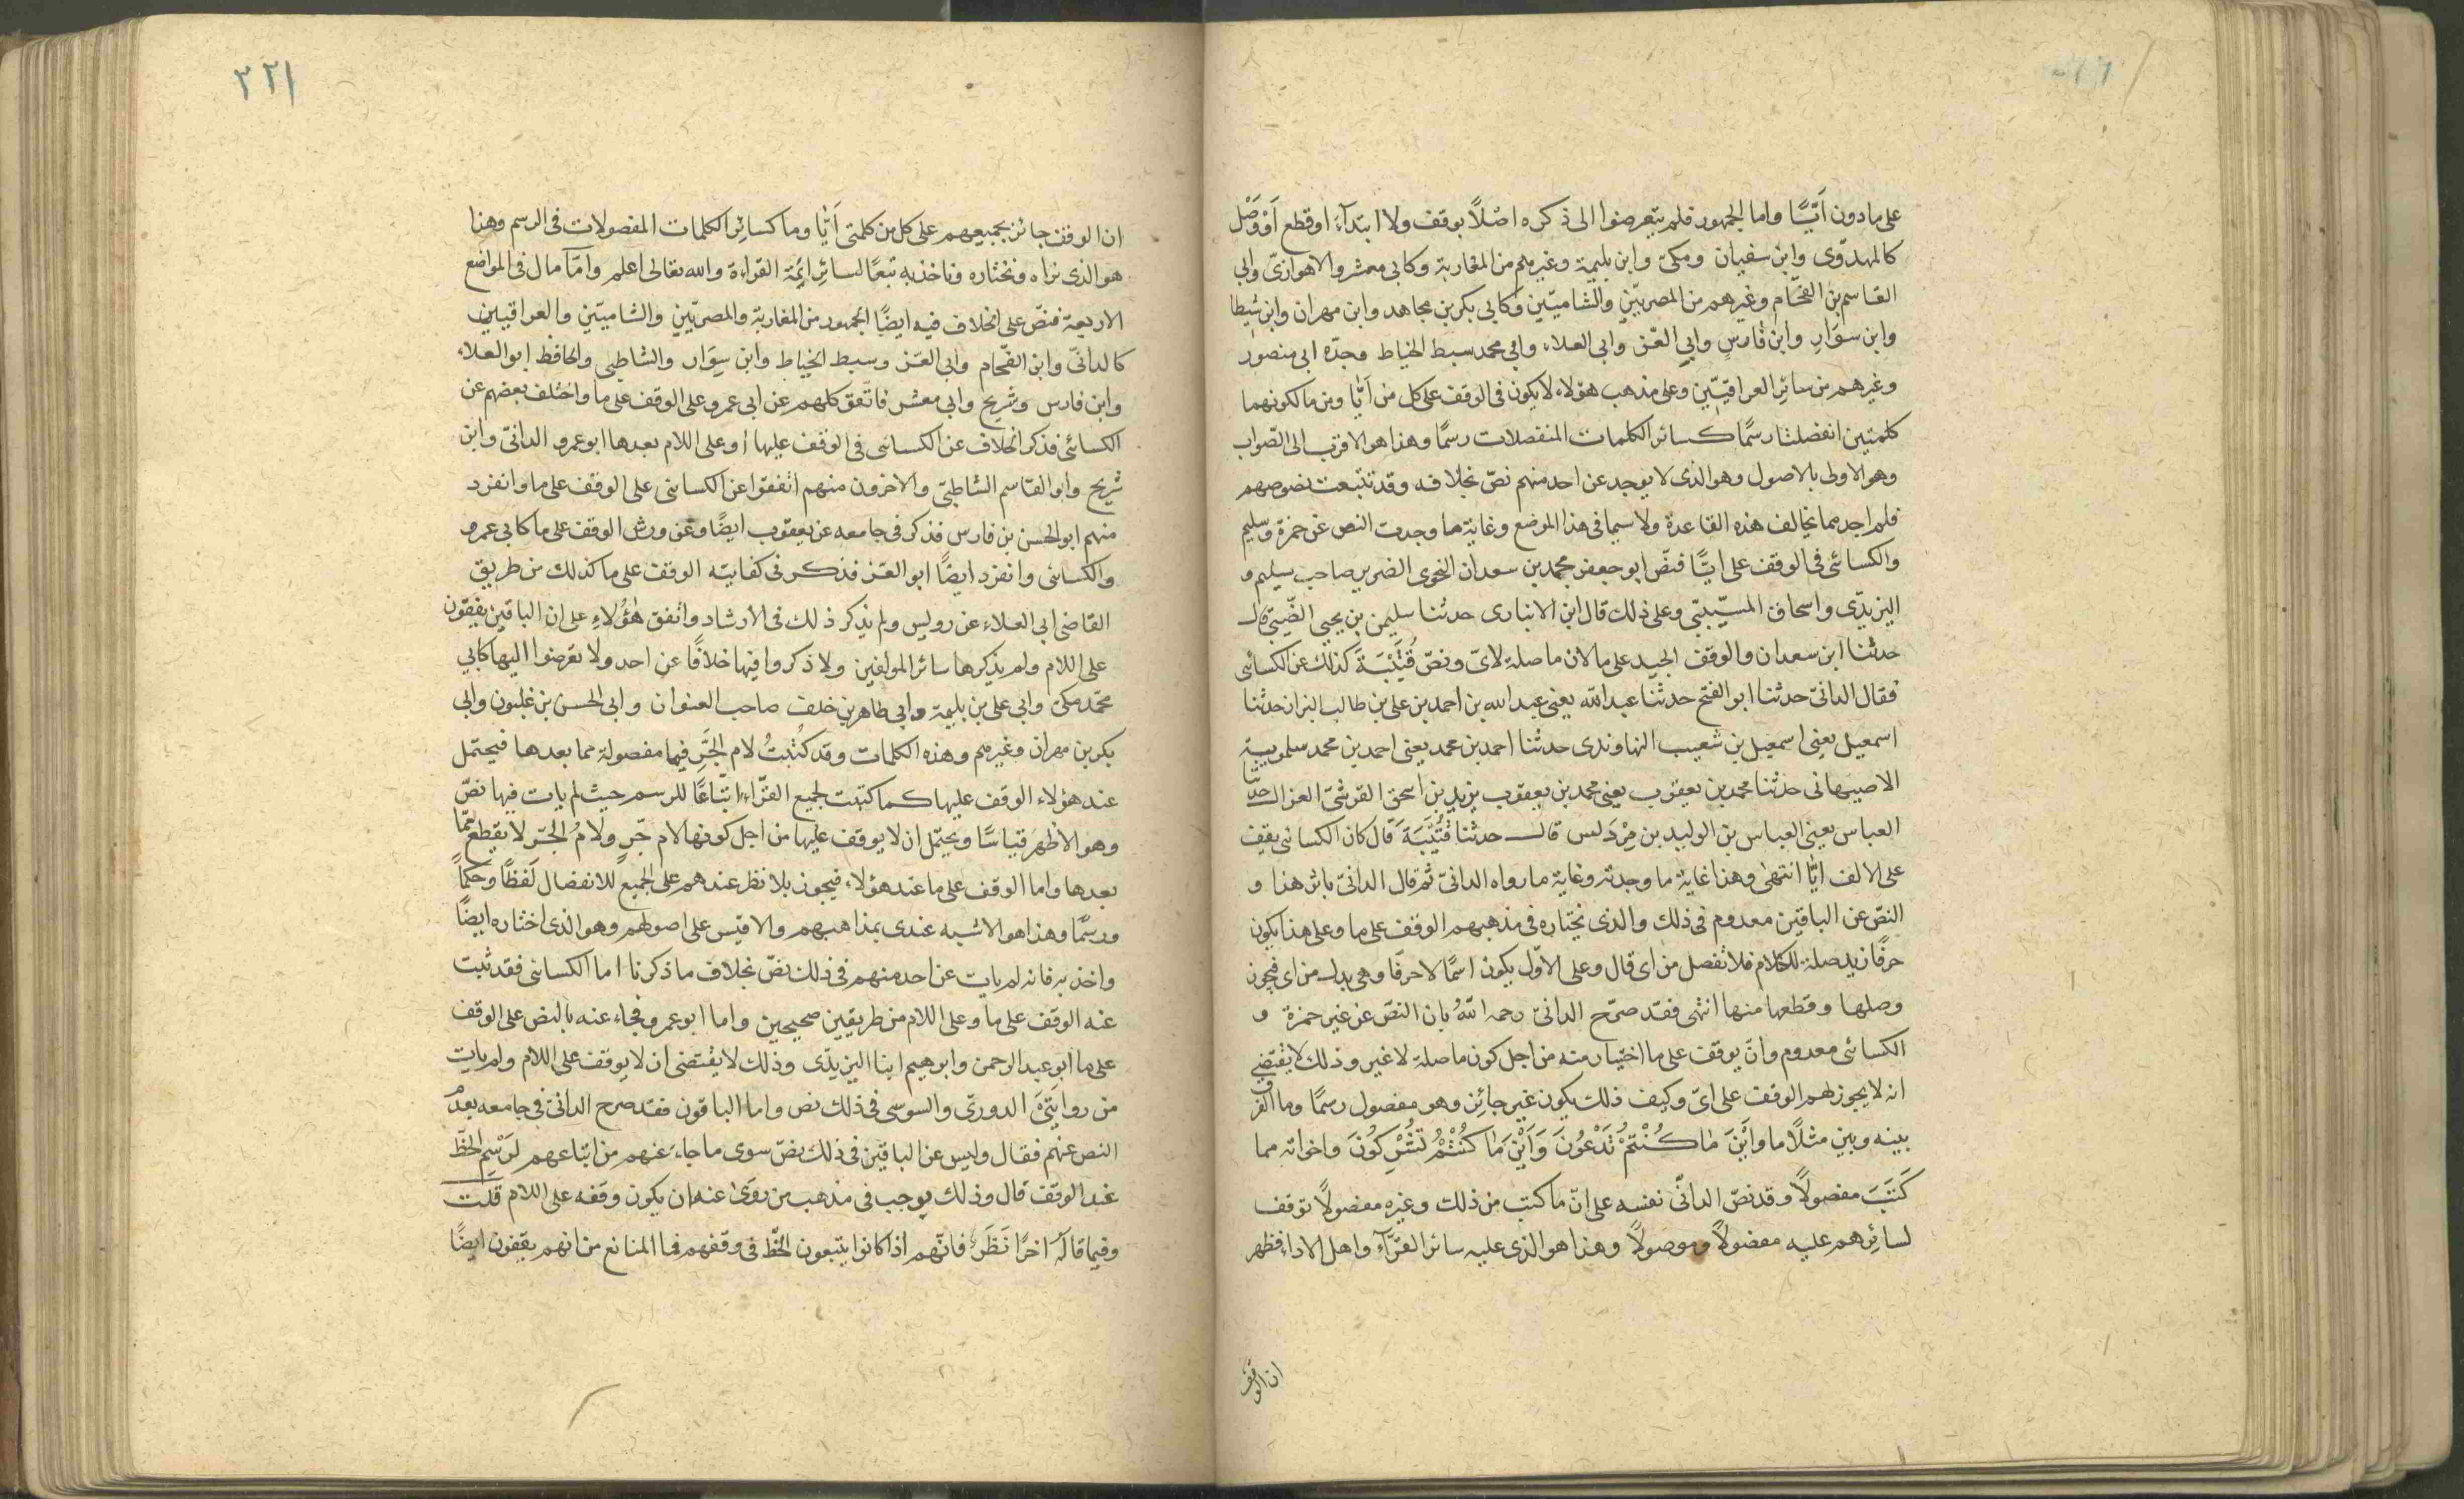 على مادون اَيًّا واما الجمهور فلم يتعرضوا الى ذكره اصلاً بوقف ولا ابتدآءَ او قطع اَوْ وَصْل
كالمهدوّى وابن سفيان ومكىّ وابن بليمة وغيرهم من المغاربة وكابى معشر والاهوازىّ وابى
القاسم بن الفحّام وغيرهم من المصريّين والشاميّين وكابى بكر بن مجاهد وابن مهران وابن شيطا
وابن سوَارٍ وابن فارسٍ وابى العزّ وابى العلاء وابى محمد سبط الخياط وجدّه ابى منصور
وغيرهم من سائر العراقيّين وعلى مذهب هؤلاء لا يكون فى الوقف على كل من اَيًّا ومن ما لكونهما
كلمتين انفصلتا رسمًا كسائر الكلمات المنفصلات رسمًا وهذا هو الاقرب الى الصّواب
وهو الاولى بالاصول وهو الذى لا يوجد عن احد منهم نصّ بخلافه وقد تتبعت نصوصهم
فلم اجد مما يخالف هذه القاعدة ولا سيما فى هذا الموضع وغاية ما وجدت النص عن حمزة وسليم
والكسائى فى الوقف على ايًّا فنصّ ابو جعفر محمد بن سعدان النحوى الضرير صاحب سليم و
اليزيدّى واسحاق المسّيبّى وعلى ذلك قال ابن الانبارى حدثنا سليمن بن يحيى الضّبّى قال
حدثنا ابن سعدان والوقف الجيد على ما لان ما صلة لاىّ ونصّ قُتَيْبَةَ كذلك عن الكسائى
فقال الدانىّ حدثنا ابو الفتح حدثنا عبد الله يعنى عبد الله بن احمد بن على بن طالب البزاز حدثنا
اسمعيل يعنى اسمعيل بن شعيب النهاوندى حدثنا احمد بن محمد يعنى احمد بن محمد سلمويية
الاصبهانى حدثنا محمد بن يعقوب يعنى محمد بن يعقوب يزيد بن اسحق القرشىّ الغزالى حدثنا
العباس يعنى العباس بن الوليد بن مِرْدَاس قال حدثنا قُتَيْبَةَ قال كان الكسائى يقف
على الالف ايًّا انتهىٰ وهذا غاية ما وجدته وغاية ما رواه الدانىّ ثم قال الدانىّ باثر هذا و
النصّ عن الباقين معدوم فى ذلك والذى نختاره فى مذهبهم الوقف على ما وعلى هذا يكون
حرفًا زيد صلة للكلام فلا تفصل من اى قال وعلى الاوّل يكون اسمًا لا حرفًا وهى بدل من اى فيجوز
وصلها وقطعها منها انتهى فقد صرّح الدانىّ رحمه اللّهُ بان النصّ عن غير حمزة و
الكسائى معدوم وانّ يوقف على ما اختيار منه من اجل كون ما صلة لا غير وذلك لا يقتضى
انه لا يجوز لهم الوقف على اىّ وكيف ذلك يكون غير جائز وهو مفصول رسمًا وما الفرق
بينه وبين مثلًا ما وَاَيْنَ مَا كُنْتُمْ تَدْعُونَ وَاَيْنَ مَا كُنْتُمْ تُشْرِكُونَ واخواته مما
كَتَبَ مفصولاً وقد نصّ الدانىّ نفسه على انّ ما كتب من ذلك وغيره مفصولاً توقف
لسائرهم عليه مفضولاً وموصولاً وهذا هو الذى عليه سائر القرّآءِ واهل الاداء فظهر
ان الوقف
٢٢١
ان الوقف جائز لجميعهم على كل من كلمتى اَيًّا وما كسائر الكلمات المفصولات فى الرسم وهذا
هو الذى نراه ونختاره وناخذ به تبعًا لسائر ائمة القراءة والله تعالى اعلم وامّا مال فى المواضع
الاربعة فنصّ على الخلاف فيه ايضًا الجمهور من المغاربة والمصريّين والشاميّين والعراقيين
كالدانىّ وابن الفحّام وابى العزّ وسبط الخياط وابن سِوَار والشاطبى والحافظ ابو العلاء
وابن فارس وشُريح وابى معشر فاتَفق كلهم عن ابى عمرو على الوقف على ما واختلف بعضهم عن
الكسائى فذكر الخلاف عن الكسائى فى الوقف عليها أوعلى اللام بعدها ابو عمرو الدانىّ وابن
شريح وابو القاسم الشاطبىّ والاخرون منهم اتفقوا عن الكسائى على الوقف على ما وانفرد
منهم ابو الحسن بن فارس فذكر فى جامعه عن يعقوب ايضًا وعن ورش الوقف على ما كابى عمرو
والكسائى وانفرد ايضًا ابو العزّ فذكر فى كفايته الوقف على ما كذلك من طريق
القاضى ابى العلاء عن رويس ولم يذكر ذلك فى الارشاد واتفق هٰؤلاءِ على ان الباقين يقفون
على اللام ولم يذكرها سائر المولفين ولا ذكروا فيها خلافًا عن احد ولا تعرضوا اليها كابى
محمّد مكىّ وابى على بن بليمة وابى طاهر بن خلف صاحب العنوان وابى الحسن بن غلبون وابى
بكر بن مهران وغيرهم وهذه الكلمات وقد كُتبتُ لام الجَرِّ فيها مفصولة مما بعدها فيحتمل
عند هؤلاء الوقف عليها كما كتبت لجميع القرّاء اتباعًا للرسم حيث لم يات فيها نصّ
وهو الاظهر قياسًا ويحتمل ان لا يوقف عليها من اجل كونها لام جّر ولامُ الجّر لا يقطع ممّا
بعدها واما الوقف على ما عند هؤلاء فيجوز بلا نظر عندهم على الجميع للانفصال لَفظًا وحكمًا
ورسمًا وهذا هو الاشبه عندى بمذاهبهم والاقيس على اصولهم وهو الذى اختاره ايضًا
واخذ به فانه لم يات عن احد منهم فى ذلك نصّ بخلاف ما ذكرنا اما الكسائى فقد ثبت
عنه الوقف على ما وعلى اللام من طريقين صحيحين واما ابو عمرو فجاء عنه بالنص على الوقف
على ما ابو عبد الرحمن وابرهيم ابنا اليزيدّى وذلك لا يقتضى ان لا يوقف على اللام ولم يات
من روايَتَىْ الدورىّ والسوسى فى ذلك نص واما الباقون فقد صرح الدانىّ فى جامعه بعدم
النص عنهم فقال وليس عن الباقين فى ذلك نصّ سوى ما جاءَ عنهم من اتباعهم لرَسْمِ الخطّ
عند الوقف قال وذلك يوجب فى مذهب من روى عنه ان يكون وقفه على اللام قلت
وفيما قاله اخرًا نَظَرٌ فانّهم اذا كانوا يتبعون الخطّ فى وقفهم فما المنانع من انهم يقفون ايضًا